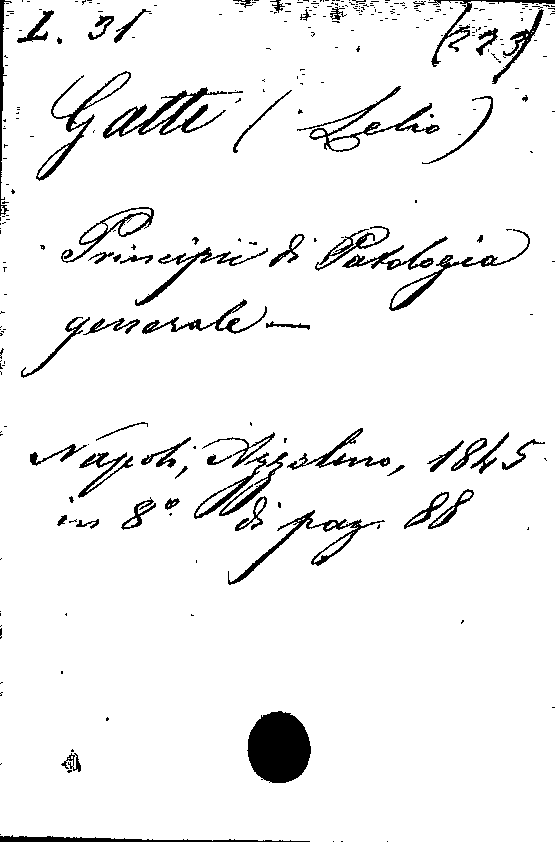 L. 31 (223)
Gatti (Lelio)
Principii di Patologia
generale —
Napoli, Azzolino, 1845
in 8° di pag. 88